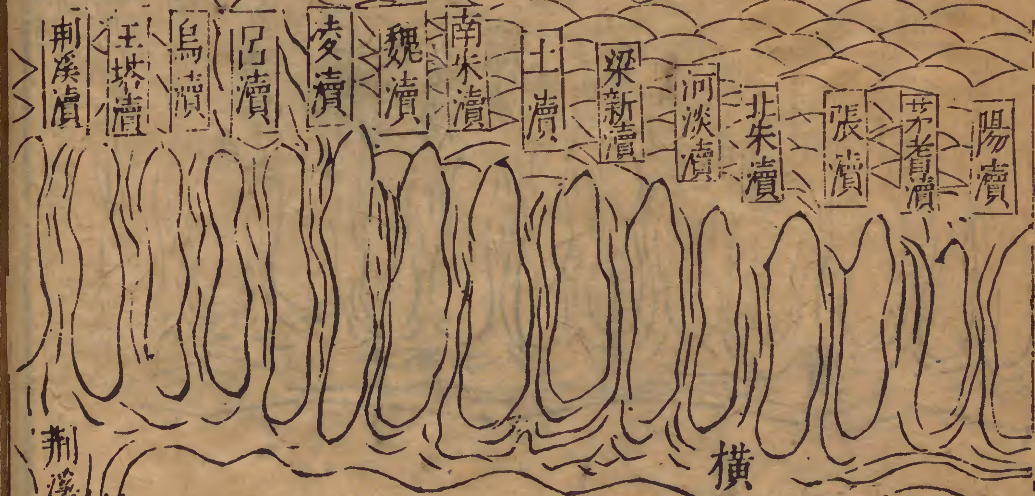 陽瀆
茅瀆
張瀆
北朱瀆
河淡瀆
梁新瀆
土瀆
南朱瀆
魏瀆
夌瀆
呂瀆
烏瀆
王塔瀆
荆溪瀆
橫
荆溪